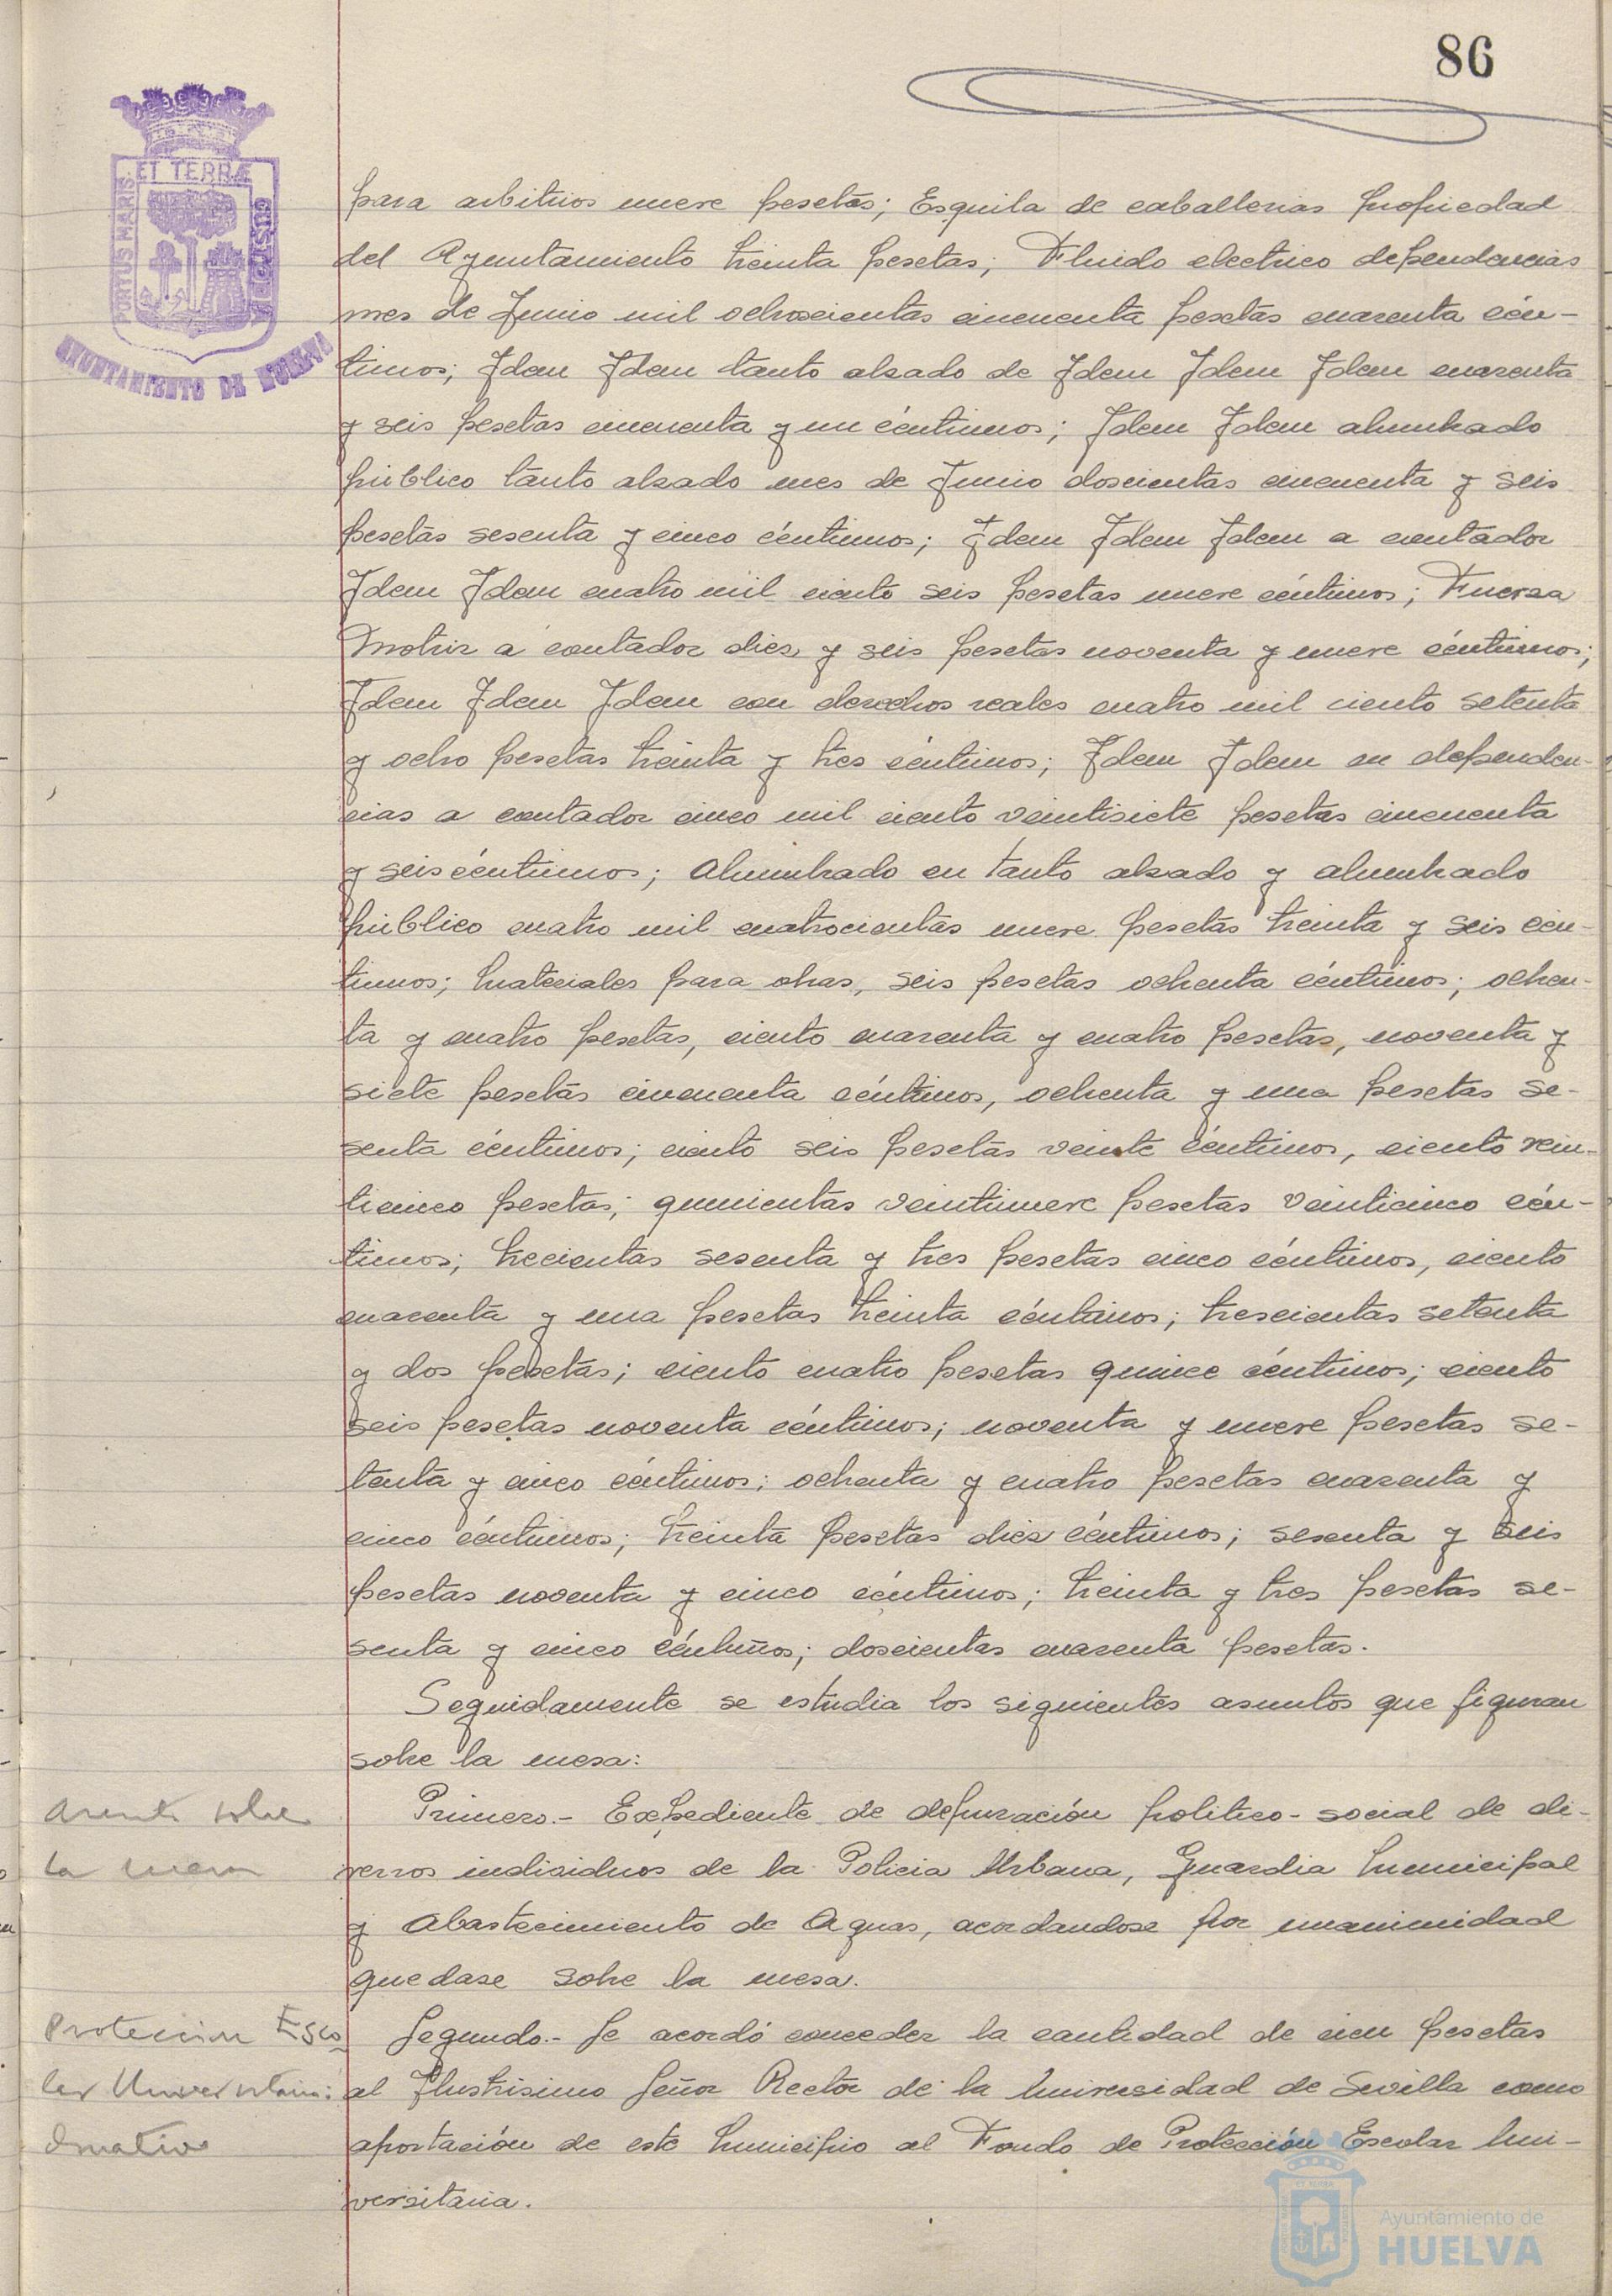 86
PORTUS MARIS
ET TERRÆ
CUSTODIA
AYUNTAMIENTO DE HUELVA
para arbitrios nueve pesetas; Esquila de caballerias propiedad
del Ayuntamiento treinta pesetas; Fluido electrico dependencias
mes de Junio mil ochoscientas cincuenta pesetas cuarenta cén-
timos; Idem Idem tanto alzado de Idem Idem Idem cuarenta
y seis pesetas cincuenta y un céntimos; Idem Idem alumbrado
público tanto alzado mes de Junio doscientas cincuenta y seis
pesetas sesenta y cinco céntimos; Idem Idem Idem a contador
Idem Idem cuatro mil ciento seis pesetas nueve céntimos; Fuerza
Motriz a contador diez y seis pesetas noventa y nueve céntimos;
Idem Idem Idem con derechos reales cuatro mil ciento setenta
y ocho pesetas treinta y tres céntimos; Idem Idem en dependen-
cias a contador cinco mil ciento veintisiete pesetas cincuenta
y seis céntimos; Alumbrado en tanto alzado y alumbrado
público cuatro mil cuatrocientas nueve pesetas treinta y seis cén-
timos; Materiales para obras, seis pesetas ochenta céntimos; ochen-
ta y cuatro pesetas, ciento cuarenta y cuatro pesetas, noventa y
siete pesetas cincuenta céntimos, ochenta y una pesetas se-
senta céntimos; ciento seis pesetas veinte céntimos, ciento vein-
ticinco pesetas; quinientas veintinueve pesetas veinticinco cén-
timos; trecientas sesenta y tres pesetas cinco céntimos, ciento
cuarenta y una pesetas treinta céntimos; trescientas setenta
y dos pesetas; ciento cuatro pesetas quince céntimos; ciento
seis pesetas noventa céntimos; noventa y nueve pesetas se-
tenta y cinco céntimos; ochenta y cuatro pesetas cuarenta y
cinco céntimos; treinta pesetas diez céntimos; sesenta y seis
pesetas noventa y cinco céntimos; treinta y tres pesetas se-
senta y cinco céntimos; doscientas cuarenta pesetas.
Seguidamente se estudia los siguientes asuntos que figuran
sobre la mesa:
Asunto sobre
la mesa
Primero.- Expediente de depuración politico-social de di-
versos individuos de la Policia Urbana, Guardia Municipal
y Abastecimiento de Aguas, acordandose por unanimidad
quedase sobre la mesa.
Proteccion Esco
lar Universitaria:
donativo
Segundo.- Se acordó conceder la cantidad de cien pesetas
al Ilustrisimo Señor Rector de la Universidad de Sevilla como
aportación de este Municipio al Fondo de Protección Escolar Uni-
versitaria.
Ayuntamiento de
HUELVA